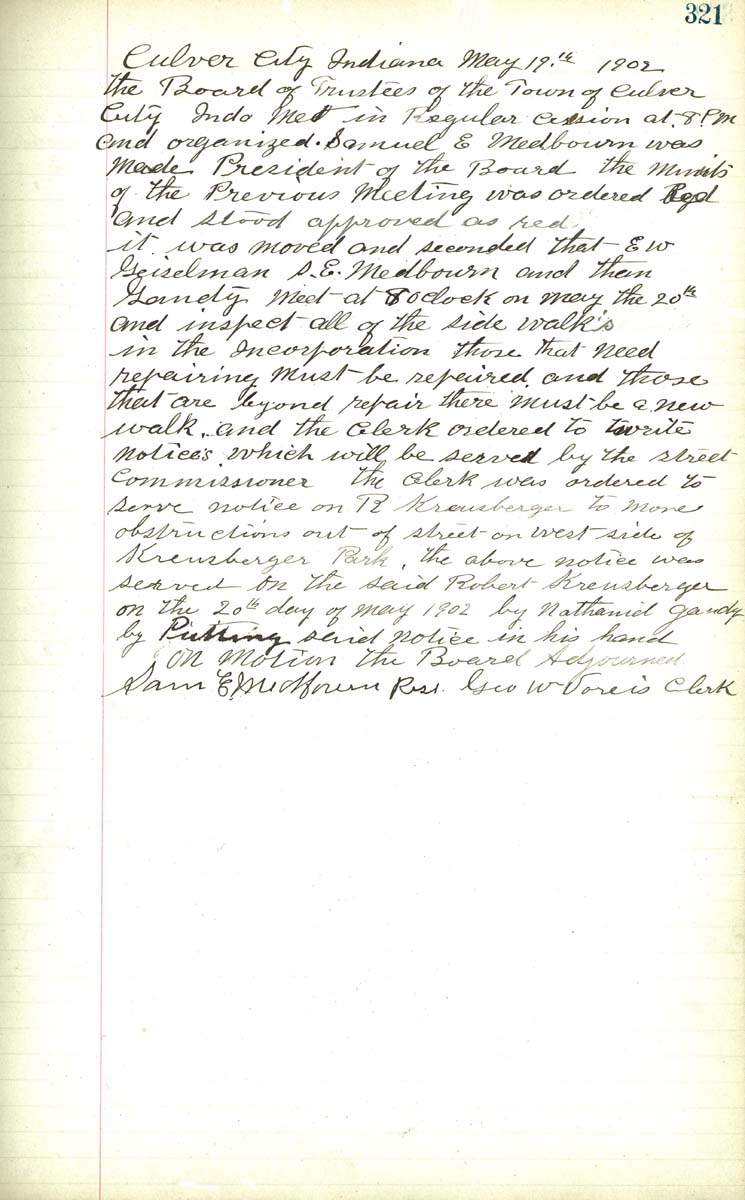 321
Culver City Indiana May 19.th 1902
the Board of Trustees of the Town of Culver
City Inda Met in Regular cession at 8 P.M
and organized. Samuel E Medbourn was
Made President of the Board the Minits
of the Previous Meeting was ordered Red
and stood approved as red.
it was moved and seconded that E W
Geiselman S.E. Medbourn and than
Gandy Meet at 8 oclock on may the 20th
and inspect all of the side walk's
in the Incorporation those that need
repairing Must be repaired, and those
that are beyond repair there must be a new
walk, and the clerk ordered to write
notices which will be served by the street
Commissioner the clerk was ordered to
serve notice on R Kreusberger to move
obstructions out of street on west side of
Kreusberger Park, the above notice was
served on the said Robert Kreusberger
on the 20th day of May 1902 by Nathaniel Gandy
by Putting said notice in his hand
on motion the Board Adjourned
Sam E. Medbourn Pres. Geo W Voreis Clerk